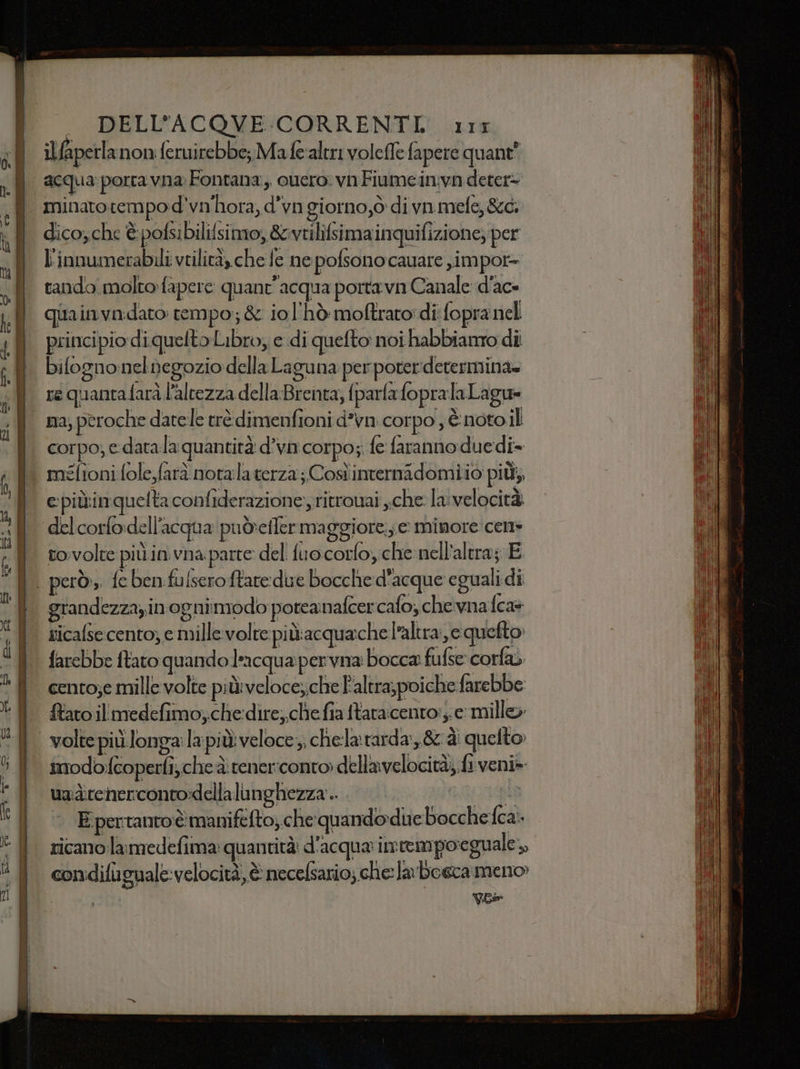 DELL'ACQVE CORRENTI. 111
il saperla non seruirebbe; Ma se altri volesse sapere quant'
acqua porta vna Fontana, ouero vn Fiume in vn deter-
minato tempo d'vn'hora, d'vn giorno, ò di vn mese, &c.
dico, che è possibilissimo, & vtilissima inquisizione, per
l'innumerabili vtilità, che se ne possono cauare, impor-
tando molto sapere quant'acqua porta vn Canale d'ac-
qua in vn dato tempo; & io l'hò mostrato di sopra nel
principio di questo Libro, e di questo noi habbiamo di
bisogno nel negozio della Laguna per poter determina-
re quanta sarà l'altezza della Brenta, sparsa sopra la Lagu-
na, peroche date le trè dimensioni d'vn corpo, è noto il
corpo, e data la quantità d'vn corpo; se saranno due di-
mẽsioni sole, sarà nota la terza; Così internãdomi io più,
e più in questa considerazione, ritrouai, che la velocità
del corso dell'acqua può esser maggiore, e minore cen-
to volte più in vna parte del suo corso, che nell'altra; E
però, se ben fussero state due bocche d'acque eguali di
grandezza, in ogni modo potea nascer caso, che vna sca-
ricasse cento, e mille volte più acqua che l'altra, e questo
sarebbe stato quando l'acqua per vna bocca fusse corsa
cento, e mille volte più veloce, che l'altra, poiche sarebbe
stato il medesimo, che dire, che sia stata cento, e mille
volte più longa la più veloce, che la tarda, & à questo
modo scopersi, che à tener conto della velocità, si veni-
ua à tener conto della lunghezza.
E pertanto è manifesto, che quando due bocche sca-
ricano la medesima quantità d'acqua in tempo eguale,
con disuguale velocità, è necessario, che la bocca meno
ve-